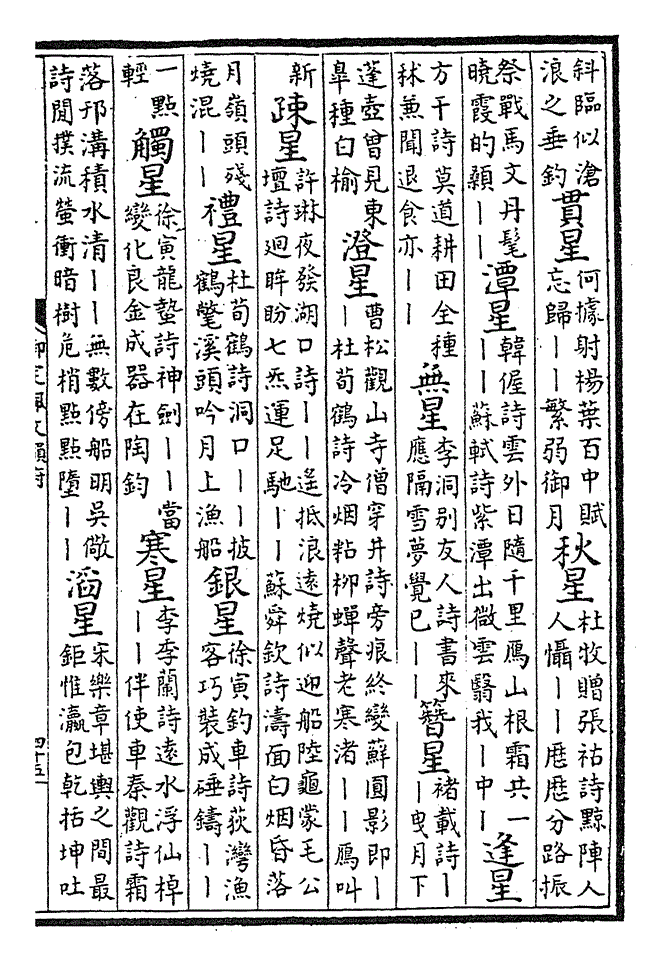 斜臨似滄浪之垂釣貫星何據射楊葉百中賦忘歸丨丨繁弱御月秋星杜牧贈張祜詩黥陣人人懾丨丨歷歷分路振
祭戰馬文丹髦曉霞的顙丨丨潭星韓偓詩雲外日隨千里鴈山根霜共一丨丨蘇軾詩紫潭出微雲翳我丨中丨逢星
方干詩莫道耕田全種秫兼聞退食亦丨丨無星李洞别友人詩書來應隔雪夢覺已丨丨簪星褚載詩丨丨曳月下
蓬壺曾見東臯種白榆澄星曹松觀山寺僧穿井詩旁痕終變蘚圓影即丨丨杜荀鶴詩冷烟粘柳蟬聲老寒渚丨丨鴈叫
新疎星許琳夜發湖口詩丨丨遙抵浪遠燒似迎船陸龜蒙毛公壇詩迴眸盼七炁運足馳丨丨蘇舜欽詩濤面白烟昏落
月嶺頭殘燒混丨丨禮星杜荀鶴詩洞口丨丨披鶴氅溪頭吟月上漁船銀星徐寅釣車詩荻灣漁客巧裝成硾鑄丨丨
一點輕觸星徐寅龍蟄詩神劍丨丨當變化良金成器在陶鈞寒星李季蘭詩遠水浮仙棹丨丨伴使車秦觀詩霜
落邗溝積水清丨丨無數傍船明吳儆詩閒撲流螢衝暗樹危梢點點墮丨丨滔星宋樂章堪輿之間最鉅惟瀛包乾括坤吐
御定佩文韻府
四十五